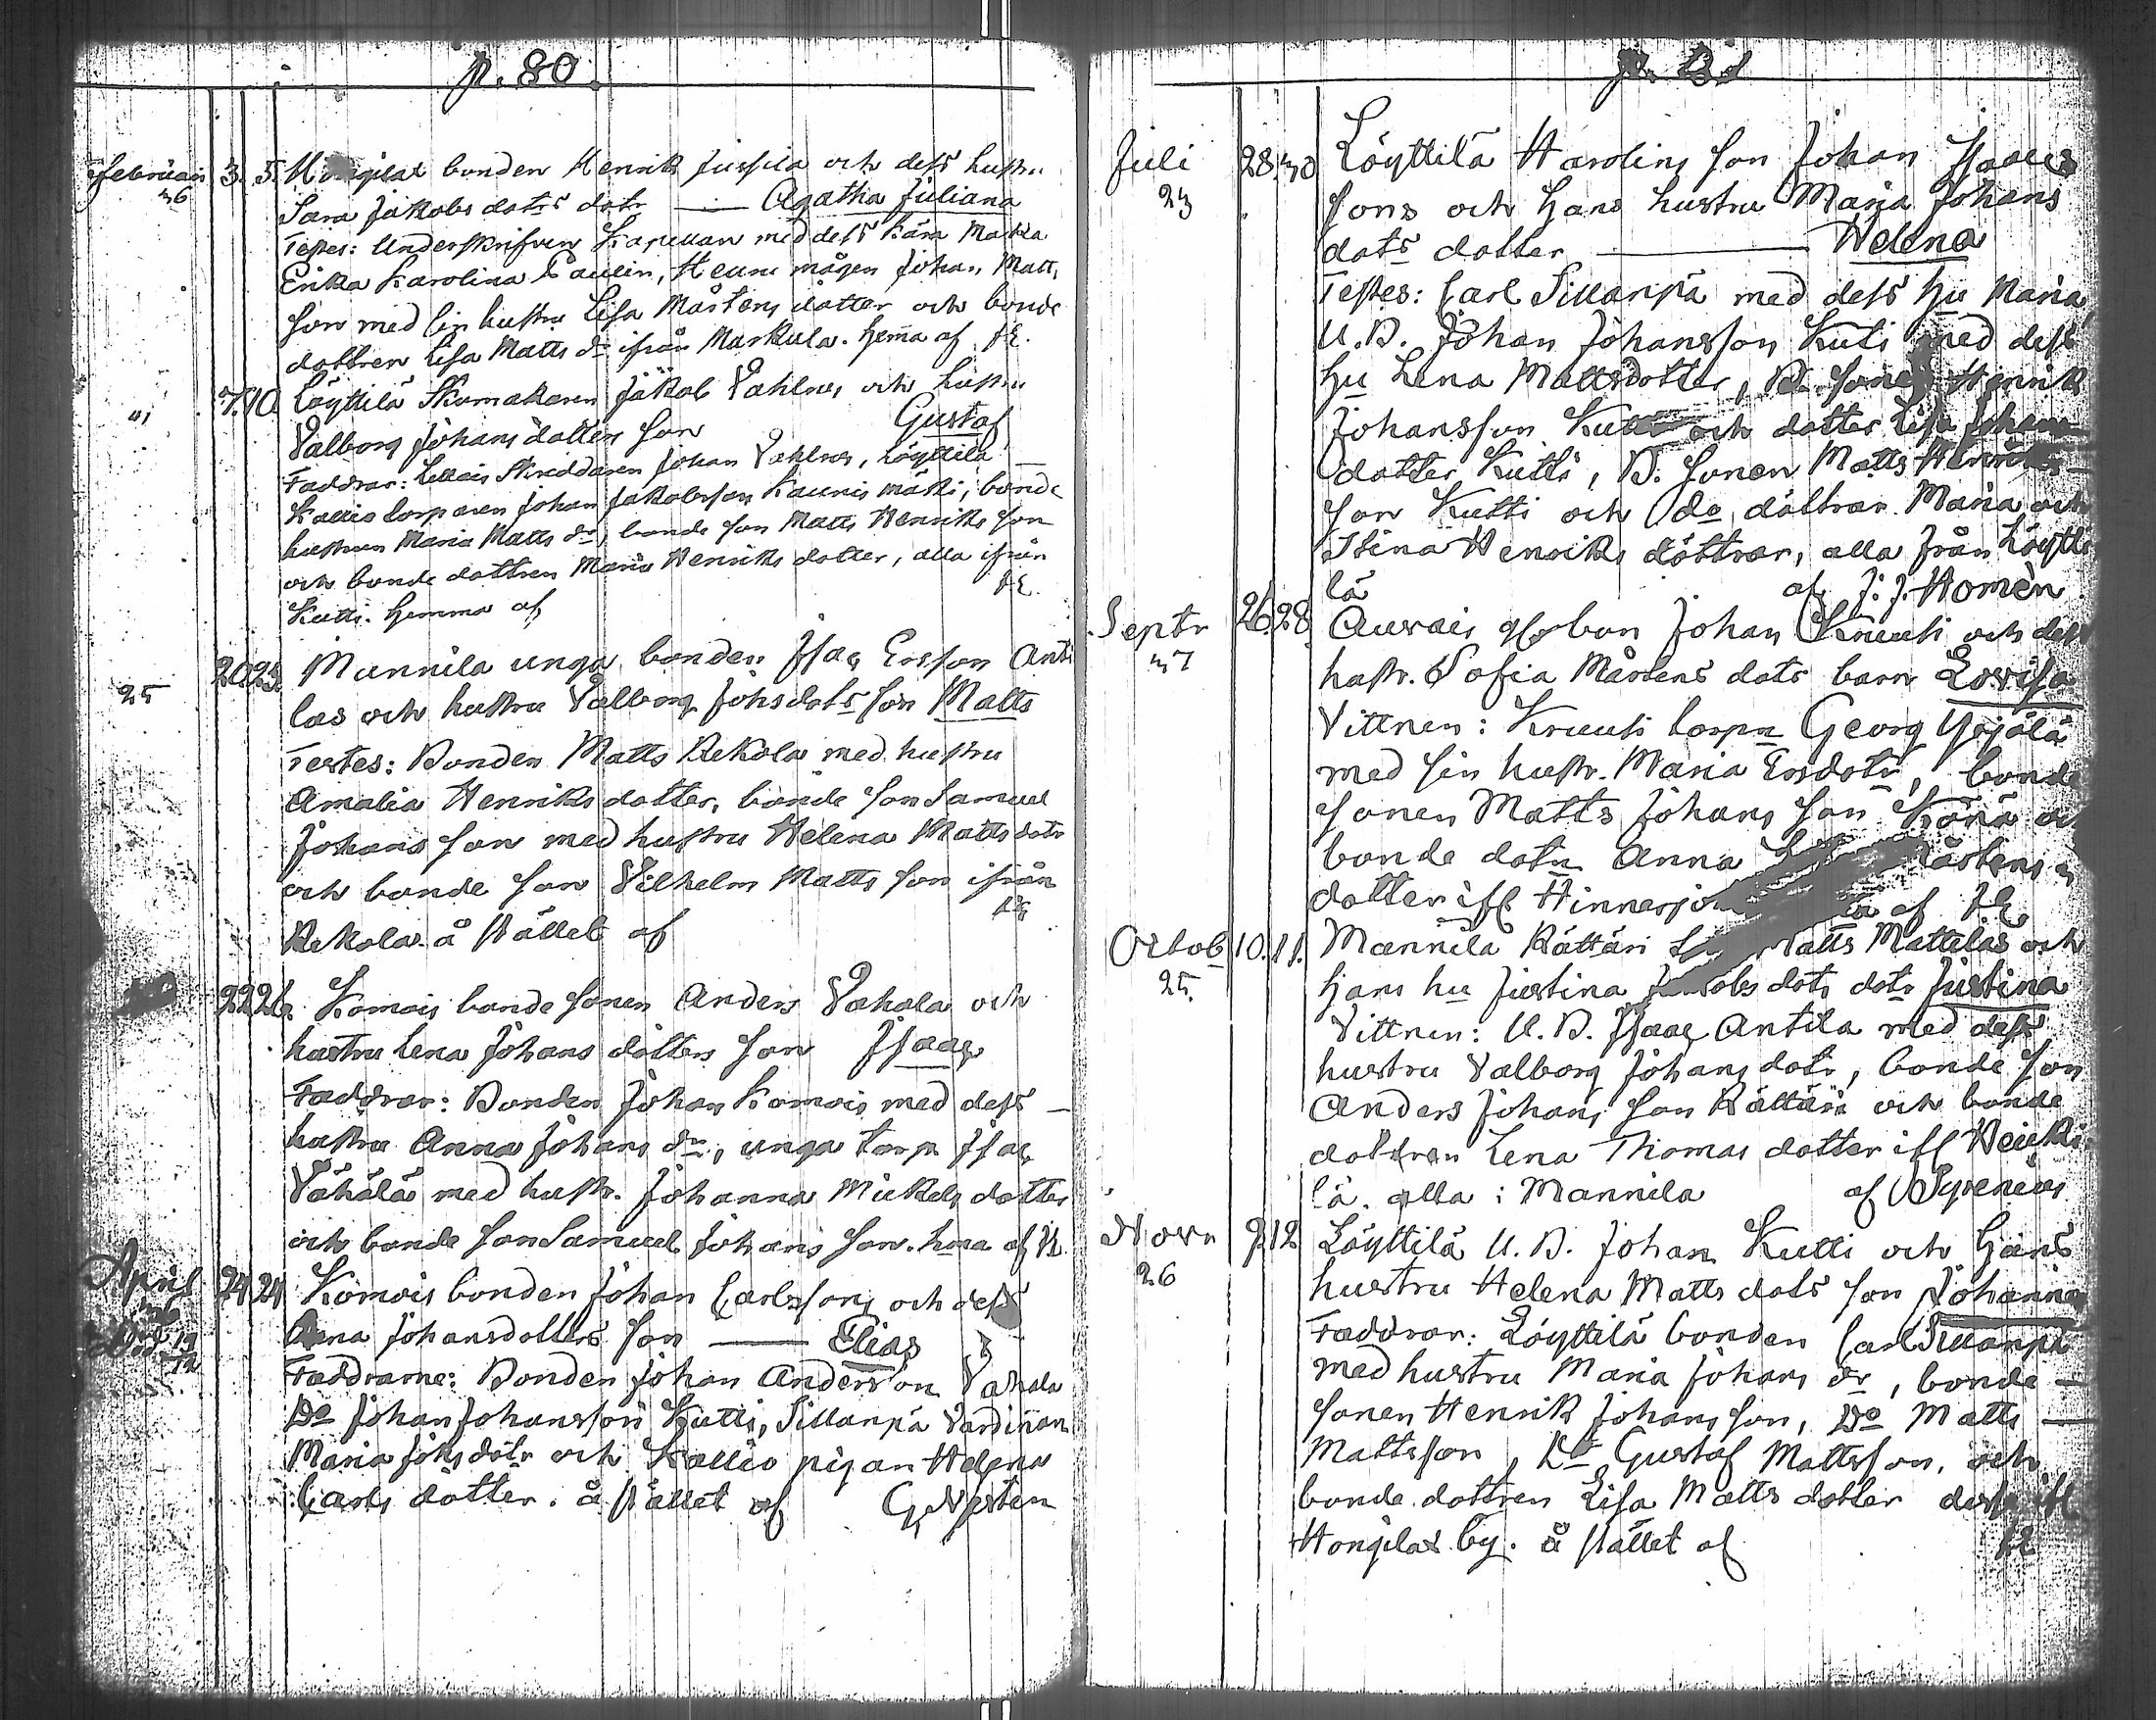 p. 80.
Februari 3. 5. bonden Henrik Jussila och dess hustru
36
Sara Jakobs dotrs dotr — Agatha Juliana
Testes: Underskrifven Kapellan med dess kära Maka
Erika Karolina Paulin, Heurus mågen Johan Matts
son med sin hustru Lisa Mårtens dotter och bonde
dottren Lisa Matts dr ifrån Markula. Hema af
7. 10. Löyttilä Skomakaren Jakob Vahlros och hustru
41
Valborg Johans dotters son Gustaf
Faddrar: Skräddaren Johan Vahlros, Löyttilä
Kallio torparen Johan Jakobsson Kaunis mäki, bonde
hustrun Maria Matts dr, bonde son Matts Henriks son
och bonde dottren Maria Henriks dotter, alla ifrån
Kutti. Hemma af
20. 23. Mannila unga bonden Isac Ersson Anti
25
las och hustru Valborg Johsdotrs son Matts
Testes: Bonden Matts Rekola med hustru
Amalia Henriks dotter, bonde son Samuel
Johans son med hustru Helena Matts dotr
och bonde son Vilhelm Matts son ifrån
Rekola. å stället af
22. 26. Komois bonde sonen Anders Vahala och
hustru Lena Johans dotters son Isaac
Faddrar: Bonden Johan Komois med dess
hustru Anna Johans dr, unga torp Isac
Vähälä med hustr. Johanna Mickels dotter
och bonde son Samuel Johans son. hma af
April 24 24 Komois bonden Johan Carlssons och dess
36
Död 19/12
Anna Johansdotters son — Elias
Faddrarne: Bonden Johan Andersson Vahala
Do Johan Johansson Kutti, Sillanpä Värdinnan
Maria Johs dotr och Kallio pigan Helena
Carls dotter. å stället af
Juli 28. 30 Löyttilä Harolins son Johan Isaacs
23
sons och hans hustru Maria Johans
dotrs dotter — Helena
Testes: Carl Sillanpä med dess hu Maria
U. B. Johan Johansson Kuti med dess
hu Lena Mattsdotter, B. sonen Henrik
Johansson Kutti och dotter Lisa Johans
dotter Kutti, B. sonen Matts Henriks
son Kutti och do döttrar Maria och
Stina Henriks döttrar, alla från Löytti
lä af J. J. Homèn
Septr 26. 28 Auvais Johan Knuuti och dess
37
hustr. Sofia Mårtens dotr barn Lovisa
Vittnen: Knuuti torpn Georg Yrjälä
med sin hustr. Maria Ersdotr, bonde
sonen Matts Johans son Könä och
bonde dotn Anna Mårtens
dotter ifr. af
Octob 10. 11. Mannila Rättäri Matts Mattilas och
25.
hans hu Justina Jakobs dotrs dotr Justina
Vittnen: U. B. Isaac Antila med dess
hustru Valborg Johans dotr, bonde son
Anders Johans son Rättäri och bonde
dottren Lena Thomas dotter ifr Heikki
lä. alla i Mannila af Cyrenius
Novr 9. 12 Löyttilä U. B. Johan Kutti och hans
26
hustru Helena Matts dotrs son Johannes
Faddrar: Löyttilä bonden Carl Sillanpä
med hustru Maria Johans dr, bonde
sonen Henrik Johans son, Do Matts
Mattsson, Do Gustaf Mattsson, och
bonde dottren Lisa Matts dotter dessa ifr
Hongilax by. å stället af